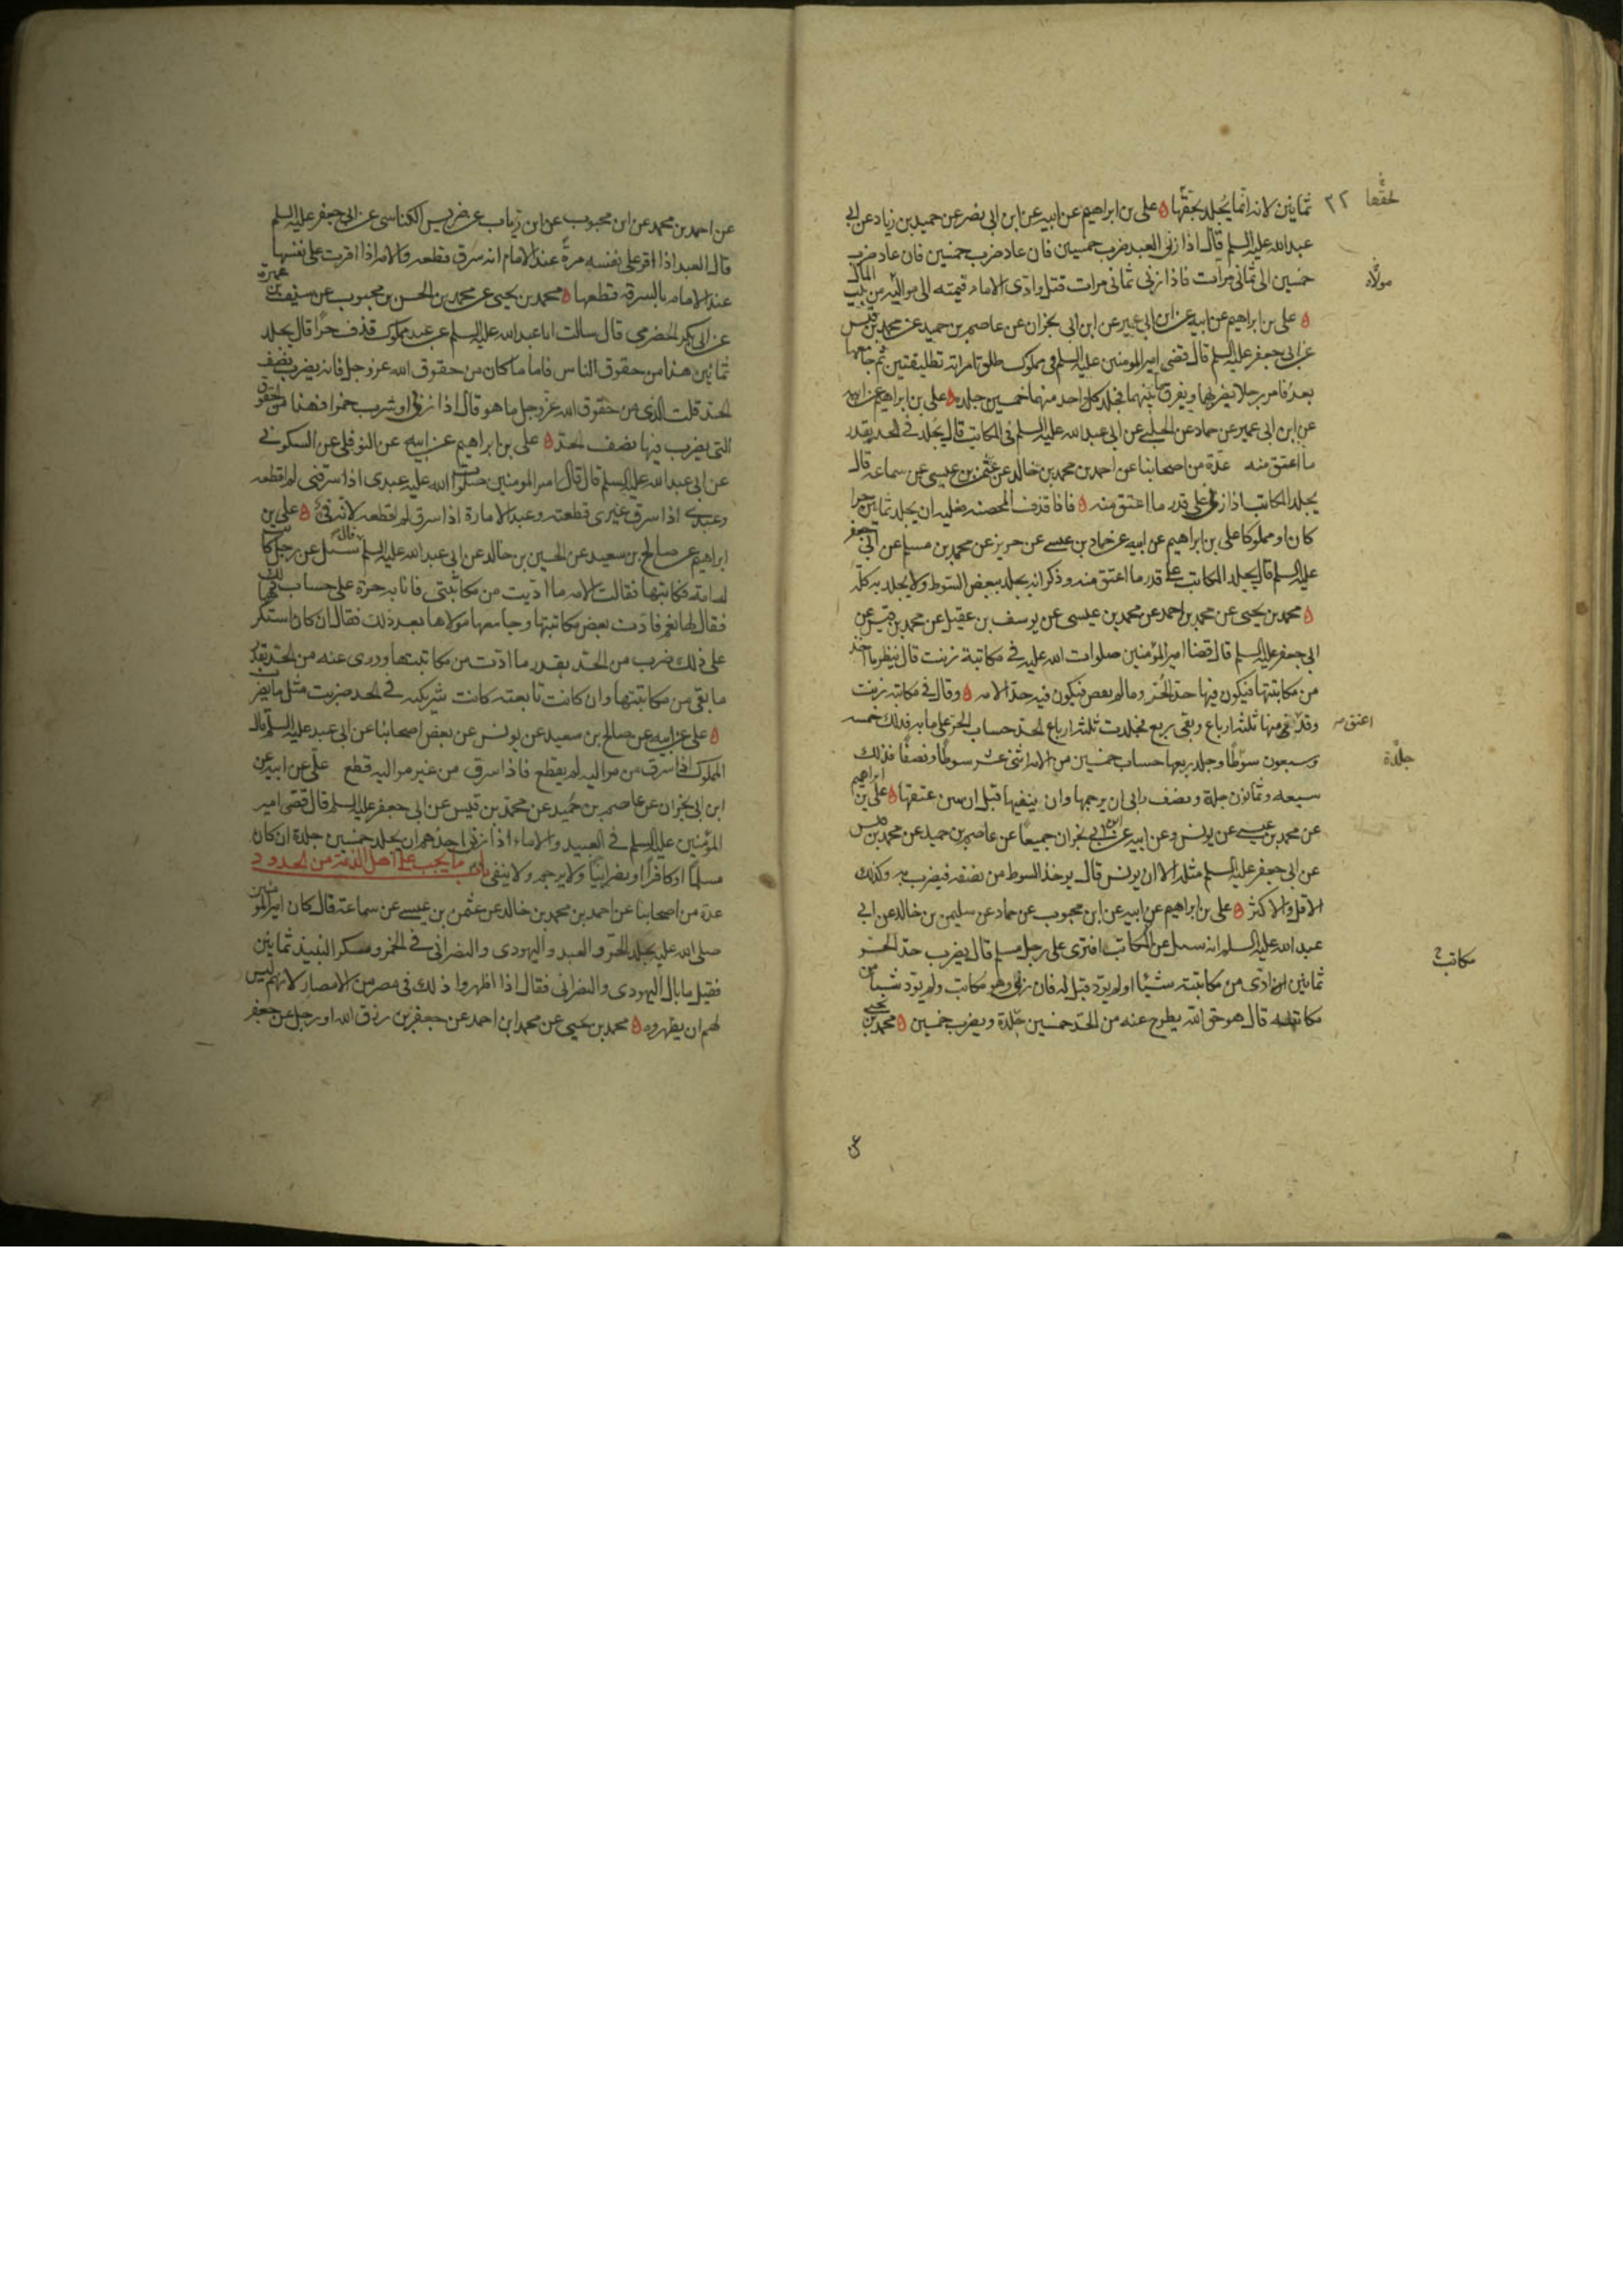 ثمانين لانه انما يجلد بحقها علي بن ابراهيم عن ابيه عن ابن ابي نصر عن حميد بن زياد عن ابي
عبدالله عليه السلم قال اذا زنى العبد ضرب خمسين فان عاد ضرب خمسين فان عاد ضرب
خمسين الى ثماني مرات فاذا زنى ثماني مرات قتل وادى الامام قيمته الى مواليه من بيت المال
علي بن ابراهيم عن ابيه عن ابن ابي عمير عن ابن ابي نجران عن عاصم بن حميد عن محمد بن قيس
عن ابي جعفر عليه السلم قال قضى امير المومنين عليه السلم في مملوك طلق امراته تطليقتين ثم جامعها
بعد فامر رجلا يضربهما ويفرق بينهما فجلد كل واحد منهما خمسين جلده علي بن ابراهيم عن ابيه
عن ابن ابي عمير عن حماد عن الحلبي عن ابي عبد الله عليه السلم في المكاتب قال يجلد في الحد بقدر
ما اعتق منه عدة من اصحابنا عن احمد بن محمد بن خالد عن عثمن بن عيسى عن سماعه قال
يجلد المكاتب اذا زنى على قدر ما اعتق منه فاذا قذف المحصنه فعليه ان يجلد ثمانين حرا
كان او مملوكا علي بن ابراهيم عن ابيه عن حماد بن عيسى عن حريز عن محمد بن مسلم عن ابي جعفر
عليه السلم قال يجلد المكاتب على قدر ما اعتق منه وذكر انه يجلد ببعض السوط ولا يجلد به كله
محمد بن يحيى عن محمد بن احمد عن محمد بن عيسى عن يوسف بن عقيل عن محمد بن قيس عن
ابي جعفر عليه السلم قال قضا امير المؤمنين صلوات الله عليه في مكاتبة زنت قال ينظر ما اخذ
من مكاتبتها فيكون فيها حد الحر وما لم يقض فيكون فيه حد الامه وقال في مكاتبه زنت
وقد منها ثلثه ارباع وبقي ربع فجلدت ثلثه ارباع الحد حساب الحر على مايه فذلك خمسه
وسبعون سوطا وجلد ربعها حساب خمسين من الامه اثنى عشر سوطا ونصفا فذلك
سبعه وثمانون جلدة ونصف وابى ان يرجمها وان ينفيها قبل ان يبين عتقها علي بن ابراهيم
عن محمد بن عيسى عن يونس وعن ابيه عن ابن ابي نجران جميعا عن عاصم بن حميد عن محمد بن قيس
عن ابي جعفر عليه السلم مثله الا ان يونس قال يوخذ السوط من نصفه فيضرب به وكذلك
الاقل والاكثر علي بن ابراهيم عن ابيه عن ابن محبوب عن حماد عن سليمن بن خالد عن ابي
عبد الله عليه السلم انه سىل عن المكاتب افترى على رجل مسلم قال يضرب حد الحر
ثمانين ان ادى من مكاتبته شيئا او لم يود قيل له فان زنى وهو مكاتب ولم يود شيئا من
مكاتبته قال هو حق الله يطرح عنه من الحد خمسين جلدة ويضرب خمسين محمد بن يحيى
لحقها ٢٢
مولاه
اعتق
جلدة
مكاتب
عن احمد بن محمد عن ابن محبوب عن ابن رياب عن ضريس الكناسى عن ابي جعفر عليه السلم
قال العبد اذا اقر على نفسه مرة عند الامام انه سرق قطعه والامه اذا اقرت على نفسها
عند الامام بالسرقه قطعها محمد بن يحيى عن محمد بن الحسن بن محبوب عن سيف بن عميرة
عن ابي بكر الحضرمي قال سالت ابا عبد الله عليه السلم عن عبد مملوك قذف حرا قال يجلد
ثمانين هذا من حقوق الناس فاما ما كان من حقوق الله عز وجل فانه يضرب نصف
الحد قلت الذى من حقوق الله عز وجل ما هو قال اذا زنى او شرب خمرا فهذا من الحقوق
التي يضرب فيها نصف الحد علي بن ابراهيم عن ابيه عن النوفلي عن السكوني
عن ابي عبد الله عليه السلم قال قال امير المومنين صلوات الله عليه عبدى اذا سرقني لم اقطعه
وعبدى اذا سرق غيرى قطعته وعبد الامارة اذا سرق لم اقطعه لانه فىء علي بن
ابراهيم عن صالح بن سعيد عن الحسين بن خالد عن ابي عبد الله عليه السلم قال سئل عن رجل كانت
له امة فكاتبها فقالت الامه ما اديت من مكاتبتي فانا به حرة على حساب ذلك
فقال لها نعم فادت بعض مكاتبتها وجامعها مولاها بعد ذلك فقال ان كان استكرهها
على ذلك ضرب من الحد بقدر ما ادت من مكاتبتها ودرى عنه من الحد بقدر
ما بقي من مكاتبتها وان كانت تابعته كانت شريكته في الحد ضربت مثل ما يضرب
علي عن ابيه عن صالح بن سعيد عن يونس عن بعض اصحابنا عن ابي عبد عليه السلم قال
المملوك اذا سرق من مواليه لم يقطع فاذا سرق من غير مواليه قطع علي عن ابيه عن
ابن ابي نجران عن عاصم بن حميد عن محمد بن قيس عن ابي جعفر عليه السلم قال قضى امير
المؤمنين عليه السلم في العبيد والاماء اذا زنى احدهم ان يجلد خمسين جلدة ان كان
مسلما او كافرا او نصرانيا ولا يرجم ولا ينفى باب ما يجب على اهل الذمة من الحدود
عدة من اصحابنا عن احمد بن محمد بن خالد عن عثمن بن عيسى عن سماعة قال كان امير المؤمنين
صلى الله عليه يجلد الحر والعبد واليهودى والنصراني في الخمر ومسكر النبيذ ثمانين
فقيل ما بال اليهودى والنصراني فقال اذا اظهروا ذلك في مصر من الامصار لانهم ليس
لهم ان يظهروه محمد بن يحيى عن محمد ابن احمد عن جعفر بن رزق الله او رجل عن جعفر